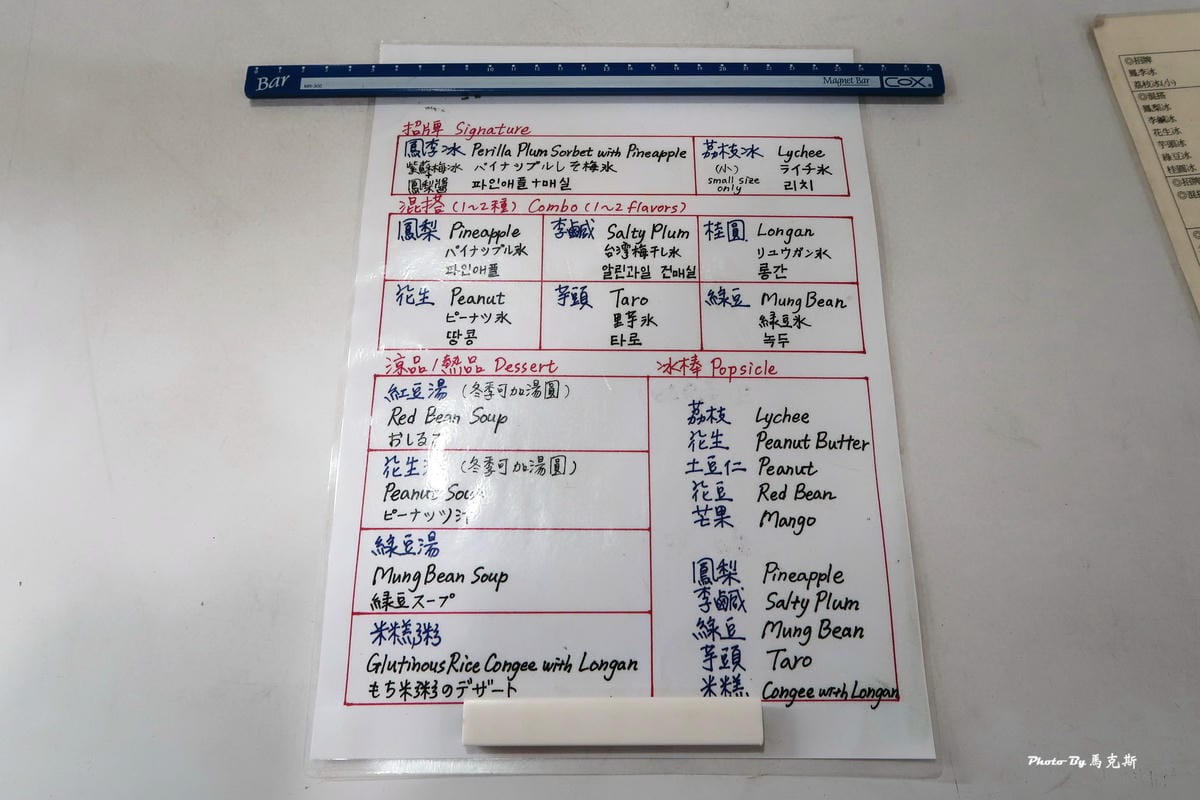 Bar
Magnet Bar COX
招牌 Signature
鳳李冰 Perilla Plum Sorbet with Pineapple
紫蘇梅冰 パイナップルしそ梅氷
鳳梨醬 파인애플+매실
荔枝冰 Lychee
(小) ライチ氷
small size only 리치
混搭(1~2種) Combo (1~2 flavors)
鳳梨 Pineapple
パイナップル氷
파인애플
李鹹 Salty Plum
台湾梅干し氷
알린과일 건매실
桂圓 Longan
リュウガン氷
롱간
花生 Peanut
ピーナツ氷
땅콩
芋頭 Taro
里芋氷
타로
綠豆 Mung Bean
緑豆氷
녹두
涼品/熱品 Dessert
紅豆湯 (冬季可加湯圓)
Red Bean Soup
おしるこ
花生 (冬季可加湯圓)
Peanut Soup
ピーナッツ汁
綠豆湯
Mung Bean Soup
緑豆スープ
米糕粥
Glutinous Rice Congee with Longan
もち米粥のデザート
冰棒 Popsicle
荔枝 Lychee
花生 Peanut Butter
土豆仁 Peanut
花豆 Red Bean
芒果 Mango
鳳梨 Pineapple
李鹹 Salty Plum
綠豆 Mung Bean
芋頭 Taro
米糕 Congee with Longan
◎招牌
鳳李冰
荔枝冰(小)
◎混搭
鳳梨冰
李鹹冰
花生冰
芋頭冰
綠豆冰
桂圓冰
◎招牌
◎混搭
Photo By 馬克斯